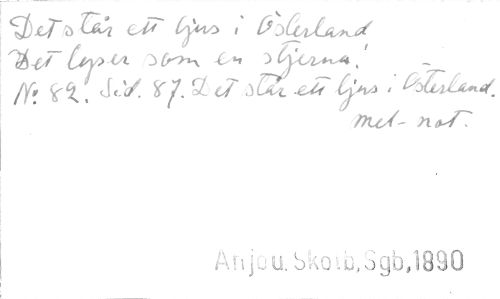 Det står ett ljus i Österland
Det lyser som en stjerna!
No. 82. Sid. 87. Det står ett ljus i Österland.
mel-not.
Anjou. Skolb, Sgb, 1890